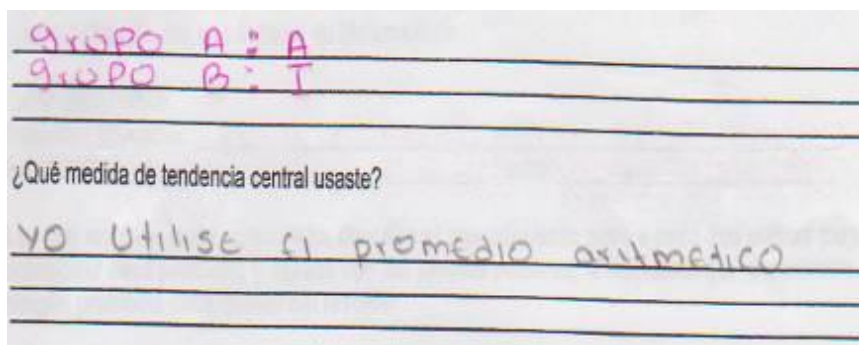 grupo A : A
grupo B : I
¿Qué medida de tendencia central usaste?
yo utilise el promedio aritmetico